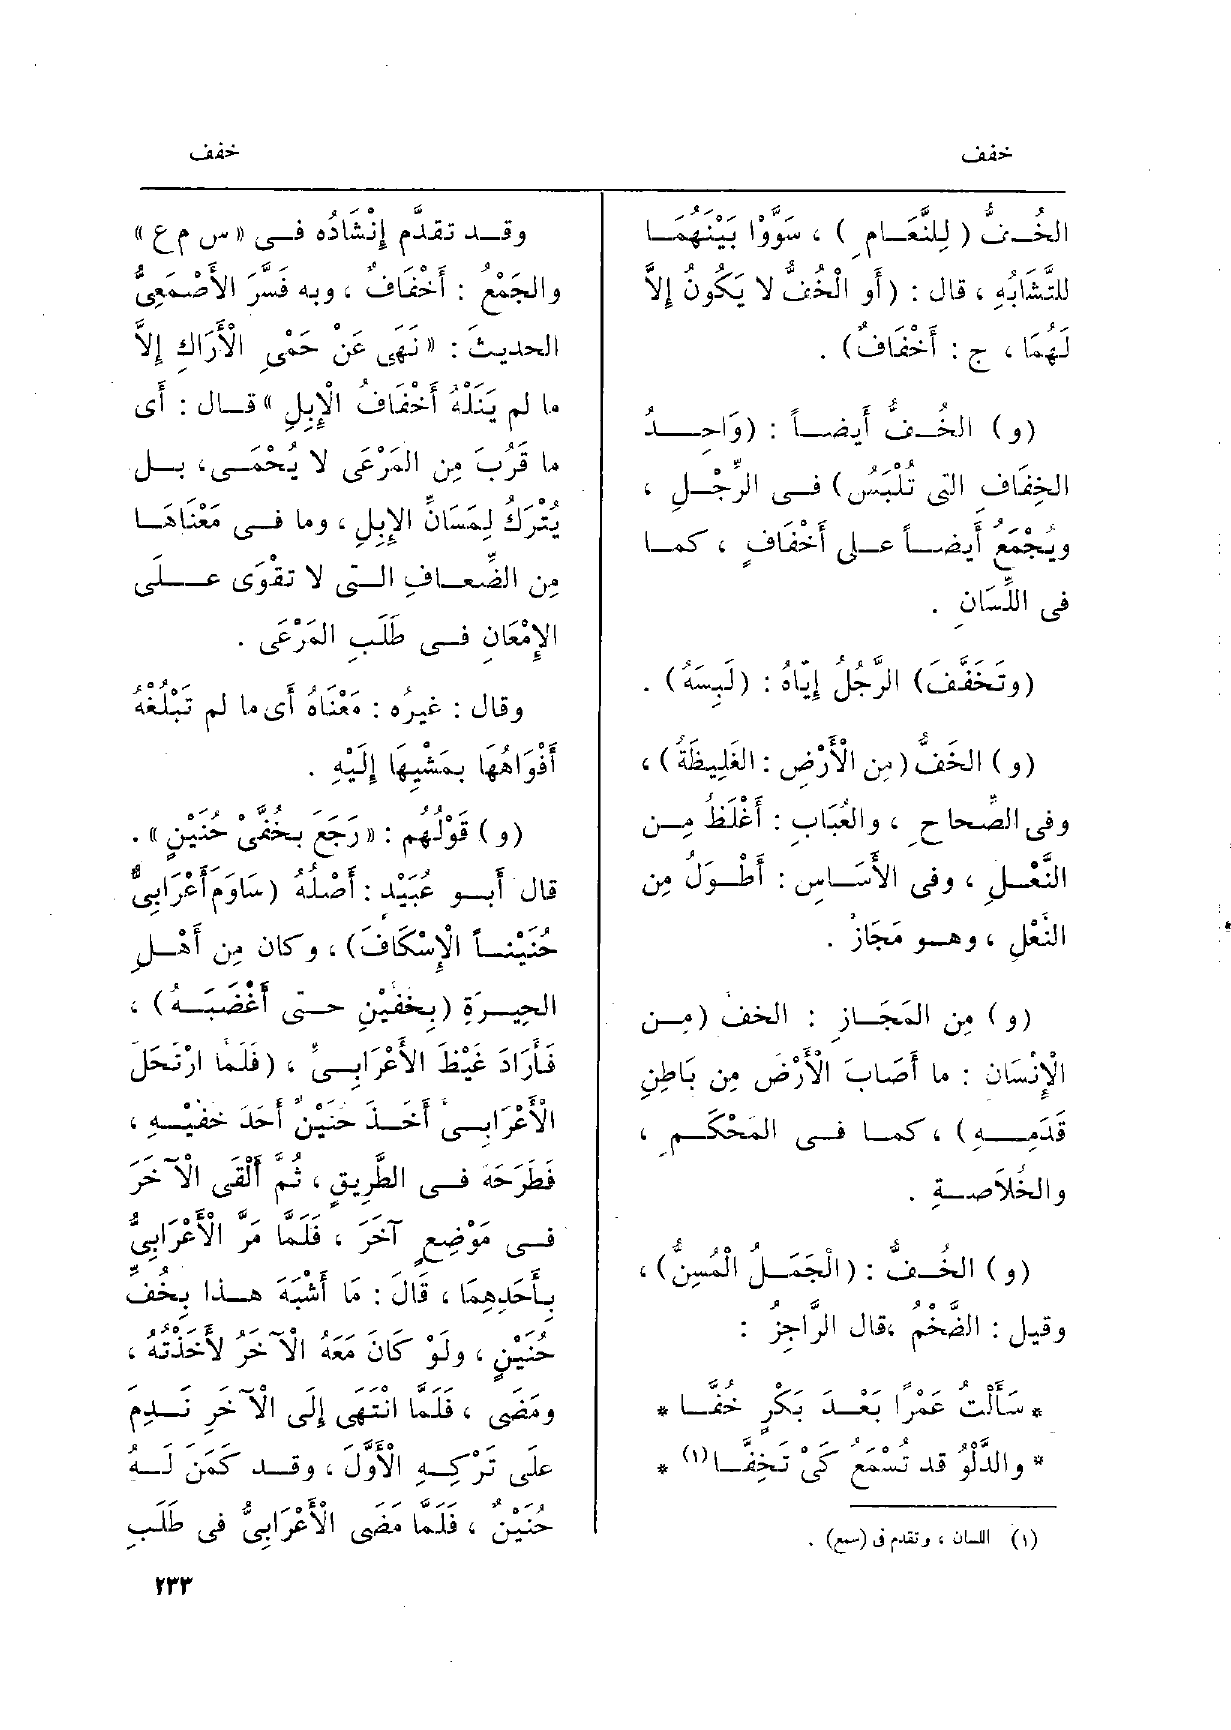 خفف
خفف
الخُـفُّ ( لِلنَّعَـامِ ) ، سَوَّوْا بَيْنَهُمَـا
للتَّشَابُهِ ، قال : (أَو الْخُفُّ لا يَكُونُ إِلاَّ
لَهُمَا ، ج : أَخْفَافٌ) .
(و) الخُـفُّ أَيضـاً : (وَاحِـــدُ
الخِفَافِ التى تُلْبَسُ) فـى الرِّجْـلِ ،
ويُجْمَعُ أَيضـاً عـلى أَخْفَافٍ ، كمـا
فى اللِّسَانِ .
(وتَخَفَّفَ) الرَّجُلُ إِيَّاهُ : (لَبِسَهُ) .
(و) الخُفُّ (مِن الْأَرْضِ : الغَلِيظَةُ) ،
وفى الصِّحاحِ ، والعُبَابِ : أَغْلَظُ مِـن
النَّعْـلِ ، وفى الأَسَـاسِ : أَطْـوَلُ مِن
النَّعْلِ ، وهـو مَجَازٌ .
(و) مِن المَجَـازِ : الخفُّ (مِـن
الْإِنْسَان : ما أَصَابَ الْأَرْضَ مِن بَاطِنِ
قَدَمِــهِ) ، كمـا فـى المُحْكَـمِ ،
والخُلاَصـةِ .
(و) الخُـفُّ : (الْجَمَـلُ الْمُسِنُّ) ،
وقيل : الضَّخْمُ ،قال الرَّاجِزُ :
* سَأَلْتُ عَمْرًا بَعْـدَ بَكْرٍ خُفَّـا *
* والدَّلْوُ قد تُسْمَعُ كَىْ تَخِفَّـا (١) *
(١) اللسان ، وتقدم فى (سمع) .
وقـد تقدَّم إِنْشَادُه فـى «س م ع»
والجَمْعُ : أَخْفَافٌ ، وبه فَسَّرَ الأَصْمَعِىُّ
الحديثَ : «نَهَى عَنْ حَمْىِ الْأَرَاكِ إِلاَّ
ما لم يَنَلْهُ أَخْفَافُ الْإِبِلِ» قـال : أَى
ما قَرُبَ مِن المَرْعَى لا يُحْمَـى، بـل
يُتْرَكُ لِمَسَانِّ الإِبِلِ ، وما فـى مَعْنَاهَـا
مِن الضِّعـافِ الـتى لا تقْوَى عـــلَى
الإِمْعَانِ فـى طَلَبِ المَرْعَى .
وقال : غيرُه : مَعْنَاهُ أَى ما لم تَبْلُغْهُ
أَفْوَاهُهَا بمَشْيِهَا إِلَيْهِ .
(و) قَوْلُهُم : «رَجَعَ بخُفَّىْ حُنَيْنٍ» .
قال أَبـو عُبَيْد : أَصْلُهُ (سَاوَمَ أَعْرَابِىٌّ
حُنَيْنـاً الْإِسْكَافَ) ، وكان مِن أَهْـلِ
الحِيـرَةِ (بِخفيْنِ حـتى أَغْضَبَـهُ) ،
فَأَرَادَ غَيْظَ الأَعْرَابِـىِّ ، (فَلَمَّا ارْتَحَلَ
الْأَعْرَابِـىُّ أَخَـذَ حُنَيْنٌ أَحَدَ خُفَّيْـهِ ،
فَطَرَحَهُ فـى الطَّرِيقِ ، ثُمَّ أَلْقَى الْآخَرَ
فـى مَوْضِعٍ آخَرَ ، فَلَمَّا مَرَّ الْأَعْرَابِىُّ
بِأَحَدِهِمَا ، قَالَ : مَا أَشْبَهَ هـذا بِخُفِّ
حُنَيْنٍ ، ولَوْ كَانَ مَعَهُ الْآخَرُ لأَخَذْتُهُ ،
ومَضَى ، فَلَمَّا انْتَهَى إِلَى الْآخَرِ نَـدِمَ
علَى تَرْكِـهِ الْأَوَّلَ ، وقـد كَمَنَ لَـهُ
حُنَيْنٌ ، فَلَمَّا مَضَى الْأَعْرَابِىُّ فى طَلَبِ
٢٣٣